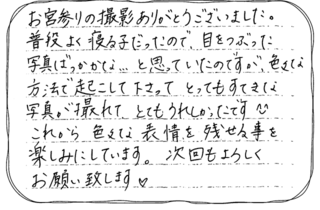 お宮参りの撮影ありがとうございました。
普段よく寝る子だったので、目をつぶった
写真ばっかかな…と思っていたのですが、色々な
方法で起こして下さって とってもすてきな
写真が撮れて とてもうれしかったです
これから 色々な 表情を 残せる事を
楽しみにしています。 次回もよろしく
お願い致します♡